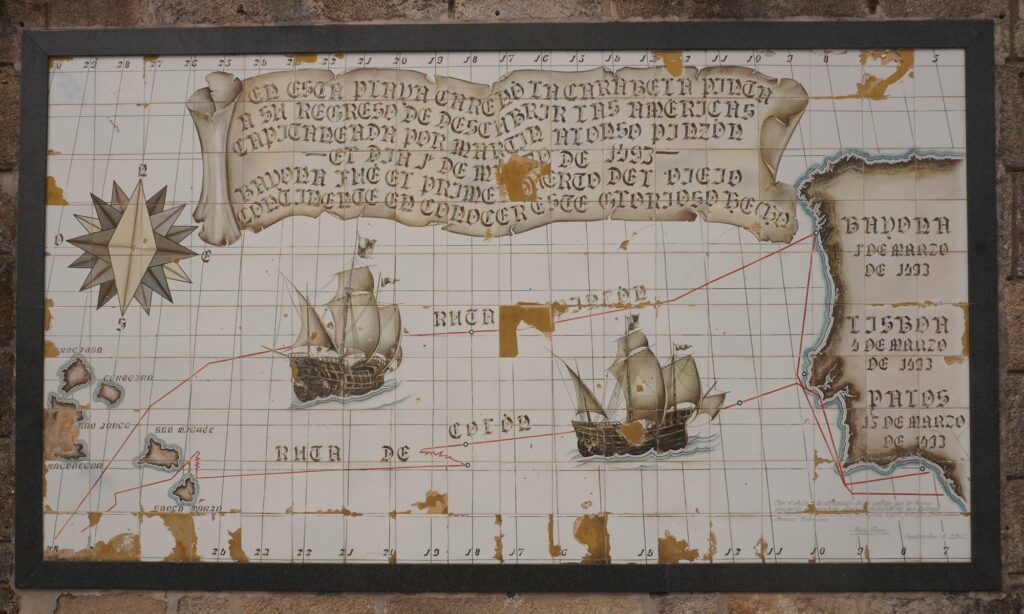 29 28 27 26 25 24 23 22 21 20 19 18 17 16 15 14 13 12 11 10 9 8 7 6 5
EN ESTA PLAYA CARENO LA CARABELA PINTA
A SU REGRESO DE DESCUBRIR LAS AMERICAS
CAPITANEADA POR MARTIN ALONSO PINZON
—EL DIA 1º DE M DE 1493—
BAYONA FUE EL PRIME ERTO DEL VIEJO
CONTINENTE EN CONOCER ESTE GLORIOSO HECHO
N
O E
S
BAYONA
1 DE MARZO
DE 1493
LISBOA
4 DE MARZO
DE 1493
PALOS
15 DE MARZO
DE 1493
RUTA PINZON
GRACIOSA
TERCEIRA
SAN JORGE
MAGDALENA
SAN MIGUEL
SANTA MARIA
RUTA DE COLÓN
Septiembre de
28 25 24 23 22 21 20 19 18 17 16 15 14 13 12 11 10 9 8 7